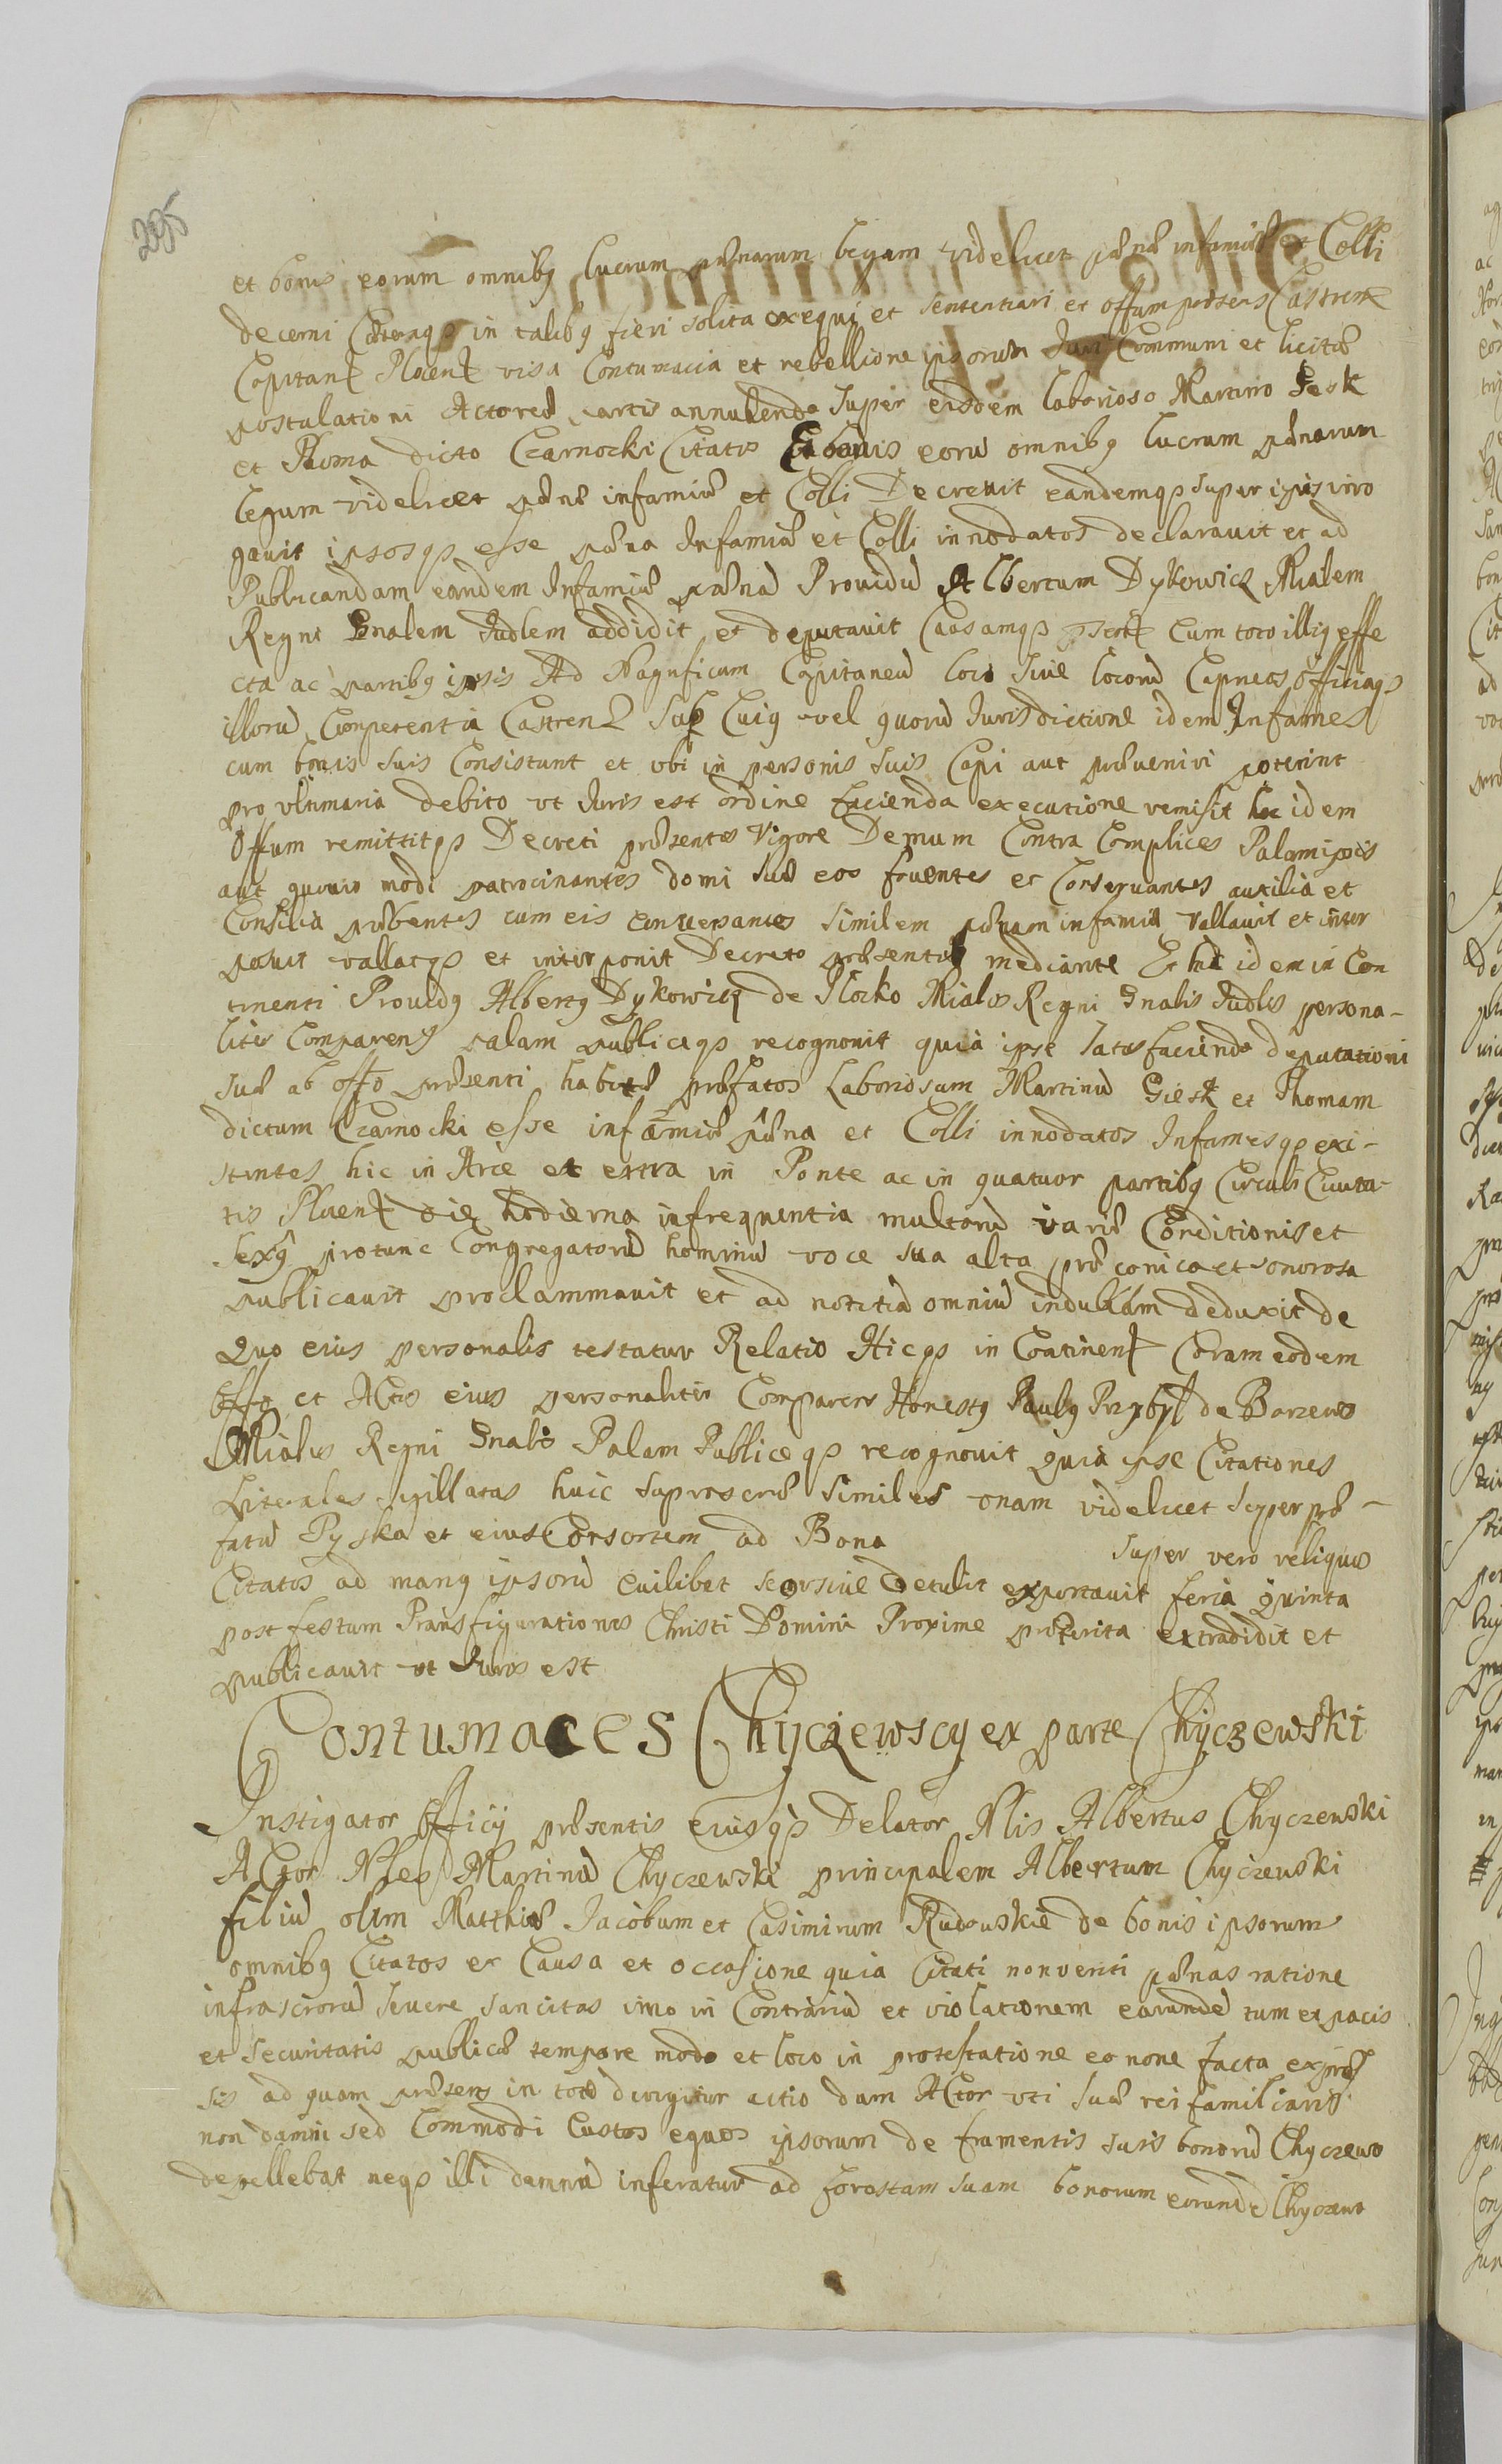 295
et bonis eorum omnibq lucrum pœnarum legum videlicet pœnæ infamiæ et Colli
decerni Cæteraqȝ in talibq fieri solita exequi et sententiari et offum præsens Castrense
Capitan Plocen visa Contumacia et rebellione ipsorum Juri Communi et licitæ
postulationi Actoreæ partis annuendo super eisdem laborioso Martino Gesk
et Thoma dicto Czarnocki Citatis Et bonis eorū omnibq lucrum pœnarum
legum videlicet pœnæ infamiæ et Colli Decrevit eandemqȝ super ipsis irro
gavit ipsosqȝ esse pœna Infamiæ et Colli innodatos declaravit et ad
Publicandam eandem Infamiæ pœnā Providū Albertum Dykowicz Mialem
Regni Gnalem Judlem addidit et deputavit Causamqȝ psent Cum toto illiq effe
cta ac partibq ipsis Ad Magnificum Capitaneū loci sive locorū Capneos Officiaqȝ
illorū Competentia Castren Sup Cuiq vel quorū Jurisdictione idem Infames
cum bonis suis Consistunt et ubi in personis suis Capi aut præveniri poterint
pro ultimaria debito ut Juris est ordine facienda executione remisit hoc idem
Offum remittitqȝ Decreti præsentis Vigore Demum Contra Complices Palam ipsis
aut quovis modi patrocinantes domi suæ eos foventes et Conservantes auxilia et
Consilia præbentes cum eis conversantes similem pœnam infamiæ vallavit et inter
posuit vallatqȝ et interponit Decreto præsenti mediante Et hic idem in Con
tinenti Providq Albertq Dykowicz de Plocko Mialis Regni Gnalis Judlis persona-
liter Comparens palam publiceqȝ recognovit quia ipse satisfaciendo deputationi
suæ ab offo præsenti habitæ præfatos Laboriosum Martinū Giesk et Thomam
dictum Czarnocki esse infamiæ pœna et Colli innodatos Infamesqȝ exi-
stentes hic in Arce et extra in Ponte ac in quatuor partibq Circuli Civita-
tis Plocen die hodierna infrequentia multorū variæ Conditionis et
Sexq protunc Congregatorū hominū voce sua alta præconica et sonorosa
publicavit proclammavit et ad notitiā omniū indubiam deduxit de
Quo eius personalis testatur Relatio Hicqȝ in Continen Coram eodem
Offo et Actis eius personaliter Comparens Honestq Paulq Przybył de Barzewo
Mialis Regni Gnalis Palam Publice qȝ recognovit quia ipse Citationes
Literales sigillatas huic suprascriæ similes unam videlicet super præ-
fatū Pyska et eius Consortem ad Bona super vero reliquos
Citatos ad manq ipsorū Cuilibet seorsive detulit exportavit feria quinta
post festum Transfigurationis Christi Domini Proxime præterita extradidit et
publicavit ut Juris est
Contumaces Chyczewscy ex parte Chyczewski
Instigator Officij præsentis eiusqȝ Delator Nlis Albertus Chyczewski
Actor Nles Martinū Chyczewski principalem Albertum Chyczewski
filiū olim Matthiæ Jacobum et Casimirum Rudowskie de bonis ipsorum
omnibq Citatos ex Causa et occasione quia Citati non veriti pœnas ratione
infrascriorū severe sancitas imo in Contrariū et violationem earundē tum et pacis
et securitatis publicæ tempore modo et loco in protestatione eo none facta expræs
sis ad quam præsens in toto dirigitur actio dum Actor uti suæ rei familiaris
non damni sed Commodi Custos equos ipsorum de frumentis suis bonorū Chyczewo
depellebat neqȝ illi damnū inferatur ad forostam suam bonorum eorundē Chyczewo